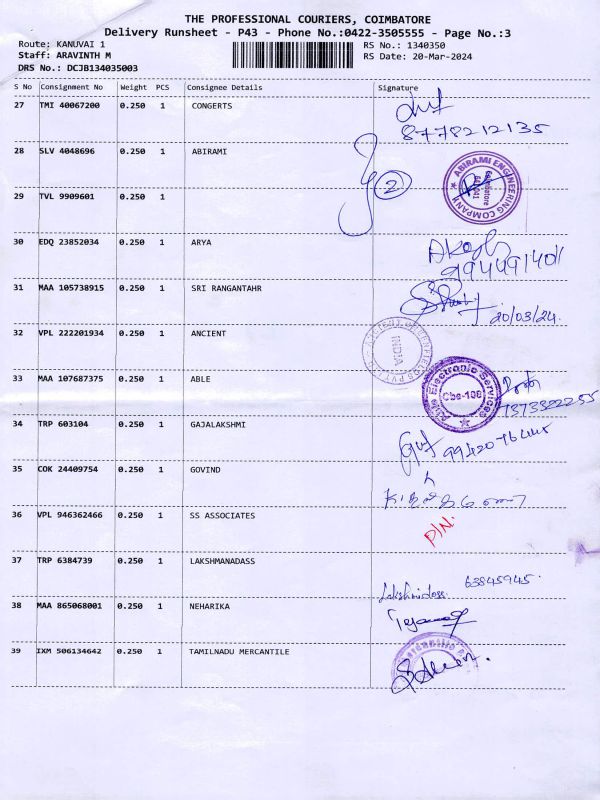 THE PROFESSIONAL COURIERS, COIMBATORE
Delivery Runsheet - P43 - Phone No.:0422-3505555 - Page No.:3
Route: KANUVAI 1 RS No.: 1340350
Staff: ARAVINTH M RS Date: 20-Mar-2024
DRS No.: DCJB134035003
S No Consignment No Weight PCS Consignee Details Signature
27 TMI 40067200 0.250 1 CONGERTS
8778212135
28 SLV 4048696 0.250 1 ABIRAMI
ABIRAMI ENGINEERING COMPANY
2
29 TVL 9909601 0.250 1
30 EDQ 23852034 0.250 1 ARYA
994491401
31 MAA 105738915 0.250 1 SRI RANGANTAHR
20/03/24.
32 VPL 222201934 0.250 1 ANCIENT
INDIA
33 MAA 107687375 0.250 1 ABLE
Able Electronic Services
Cbe-108
7373322255
34 TRP 603104 0.250 1 GAJALAKSHMI
35 COK 24409754 0.250 1 GOVIND
36 VPL 946362466 0.250 1 SS ASSOCIATES
P/N.
37 TRP 6384739 0.250 1 LAKSHMANADASS
63845945.
38 MAA 865068001 0.250 1 NEHARIKA
39 IXM 506134642 0.250 1 TAMILNADU MERCANTILE